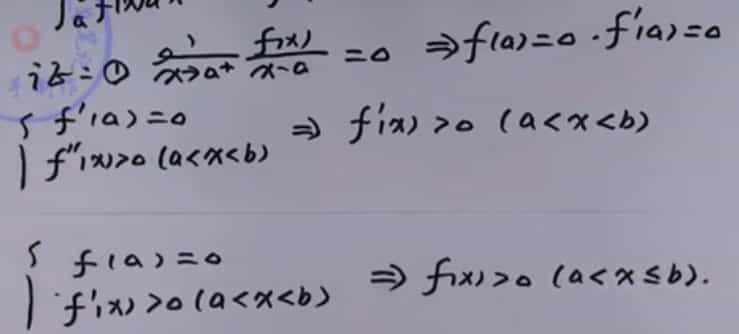 证：① lim x→a+ f(x)/(x-a) = 0 ⇒ f(a)=0 · f'(a)=0
{ f'(a)=0
f''(x)>0 (a<x<b) ⇒ f'(x)>0 (a<x<b)
{ f(a)=0
f'(x)>0 (a<x<b) ⇒ f(x)>0 (a<x≤b).